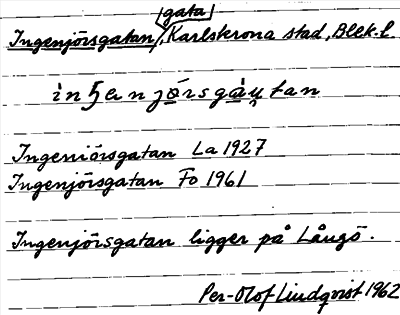 gata
Ingenjörsgatan/, Karlskrona stad, Blek. l.
Ingeniörsgatan La 1927
Ingenjörsgatan Fo 1961
Ingenjörsgatan ligger på Långö.
Per-Olof Lindqvist 1962